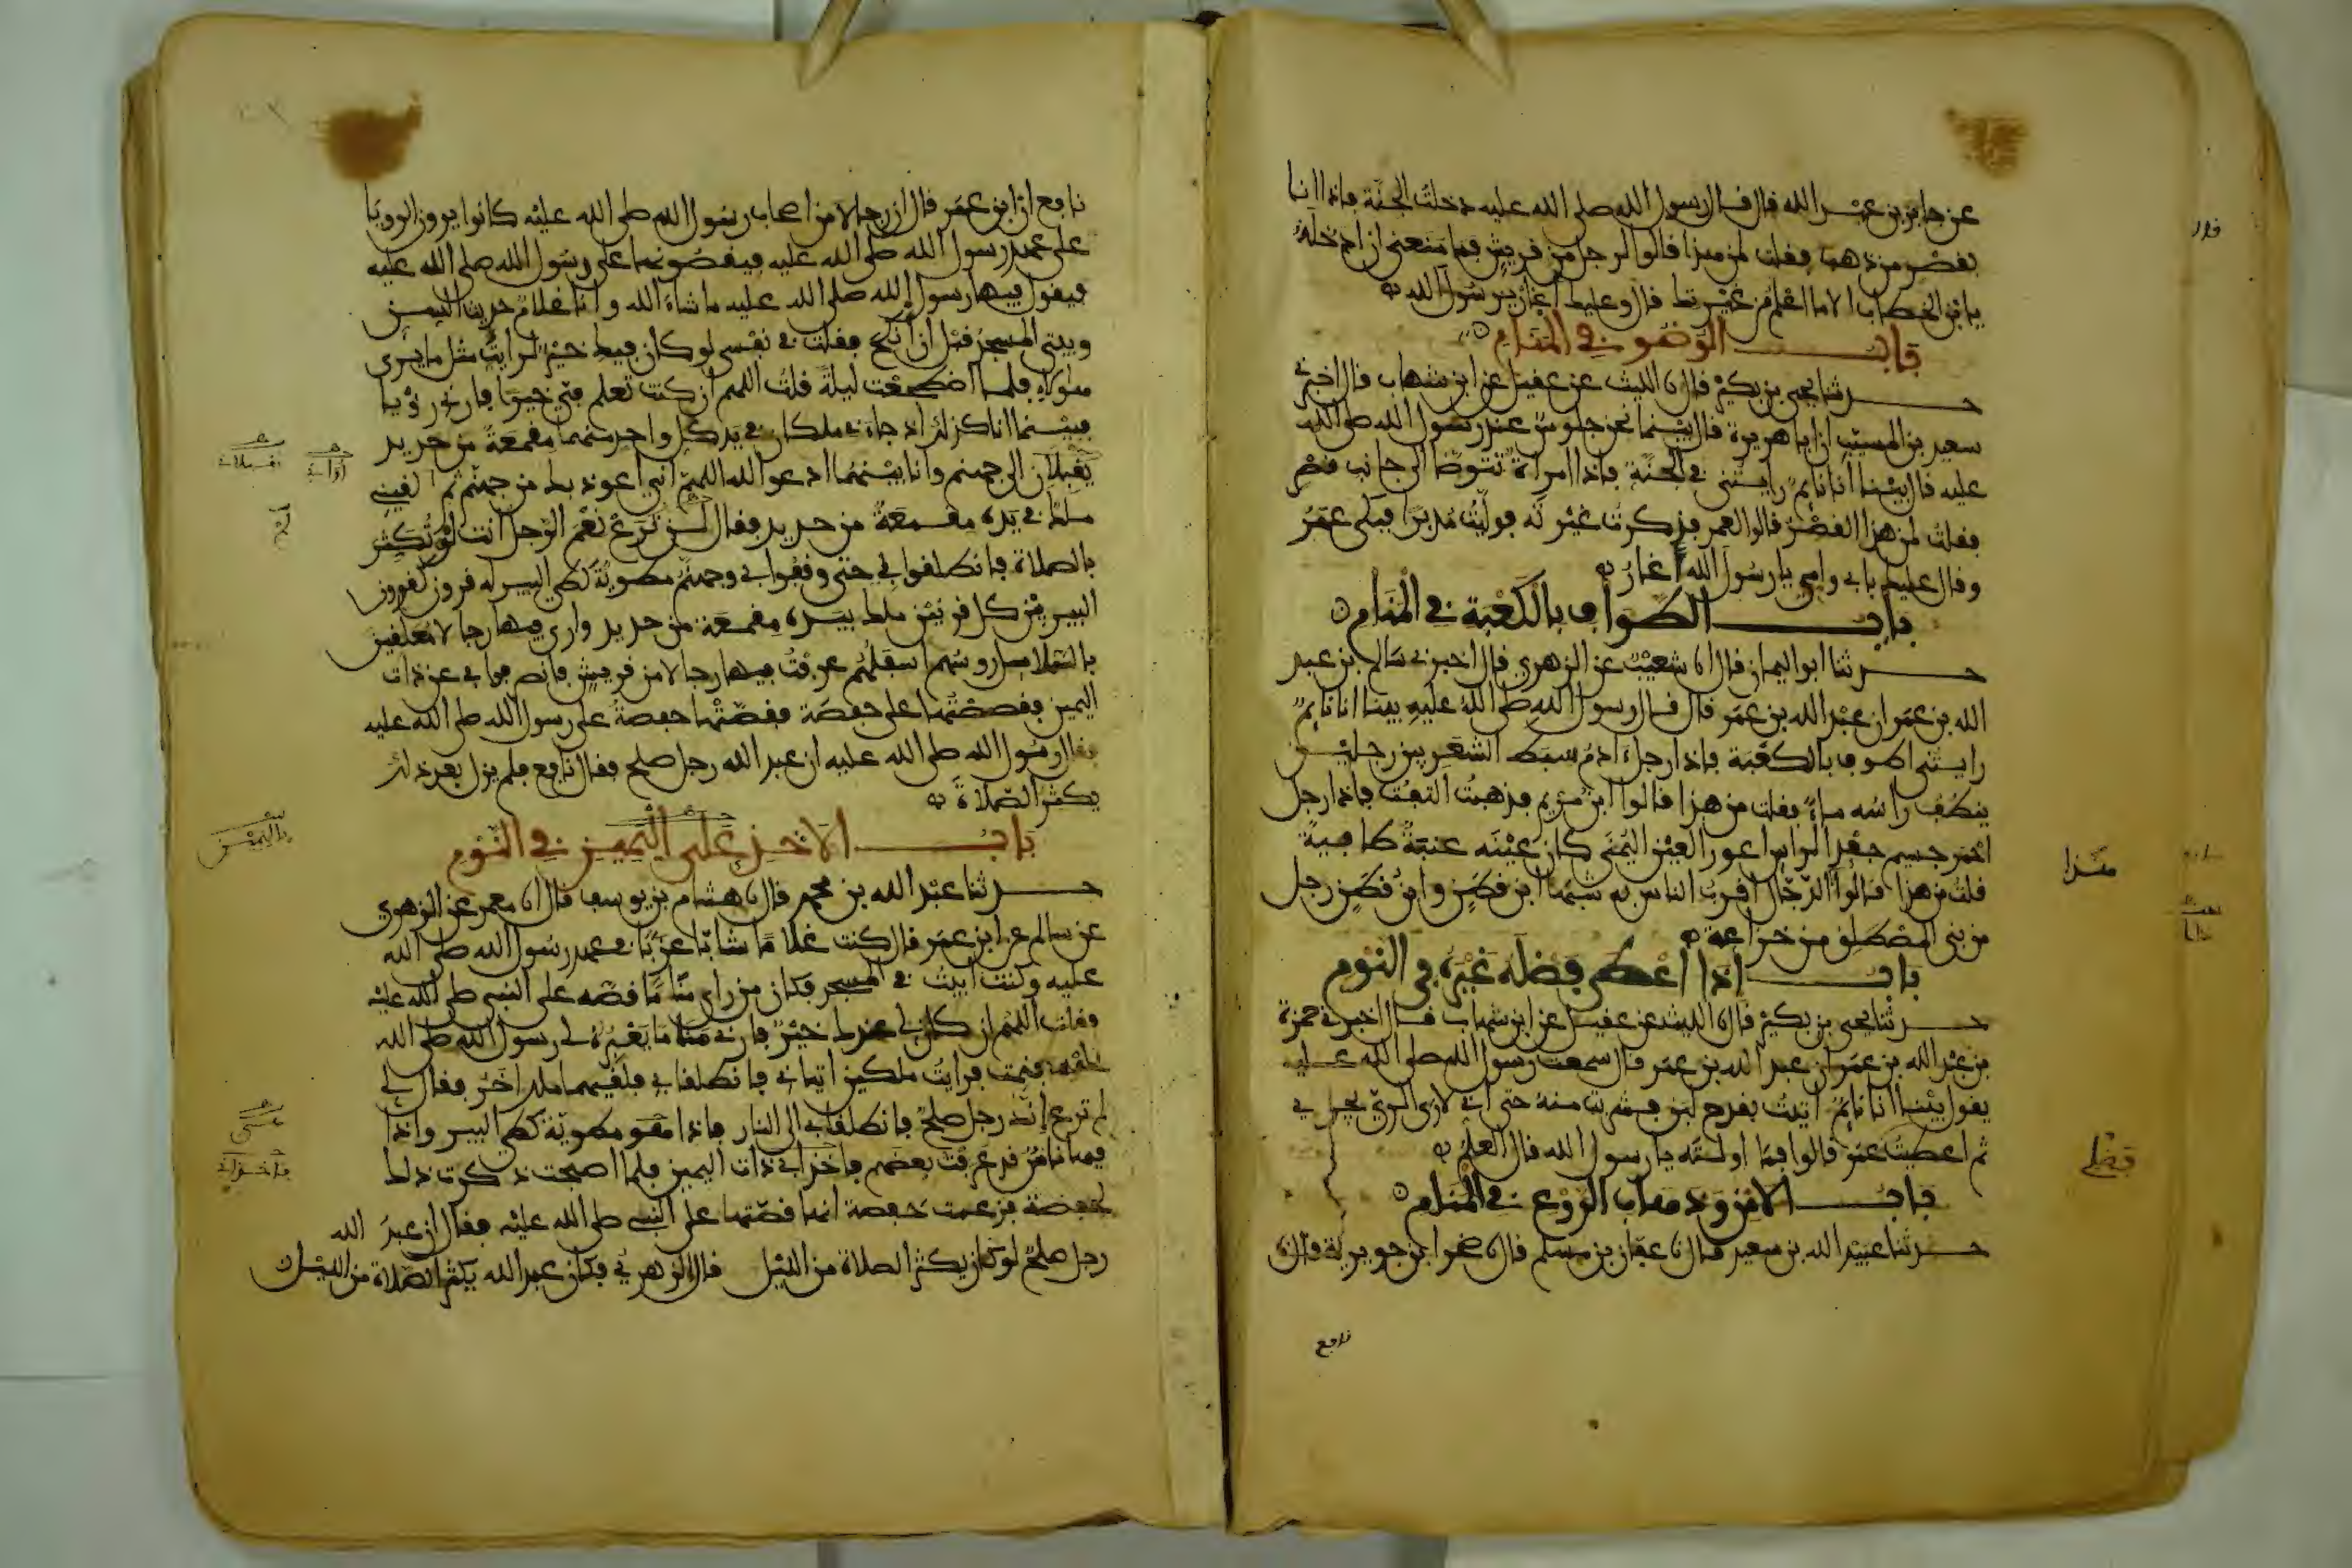 عن جابر بن عبد الله قال قال رسول الله صلى الله عليه دخلت الجنة فاذا انا
بقصر من ذهب فقلت لمن هذا فالوا لرجل من قريش فما منعني ان ادخله
يا بن الخطاب الا ما اعلم من غيرتك قال وعليك اغار يرسول الله
باب الوضو في المنام
حدثنا يحيى بن بكير قال نا الليث عن عقيل عن ابن شهاب قال اخبرني
سعيد بن المسيب ان ابا هريرة قال بينما نحن جلوس عند رسول الله صلى الله
عليه قال بينا انا نايم رايتني في الجنة فاذا امراة تتوضا الى جانب قصر
فقلت لمن هذا القصر قالوا لعمر فذكرت غيرته فوليت مدبرا فبكى عمر
وقال عليك بابي وامي يا رسول الله اغار
باب الطواف بالكعبة في المنام
حدثنا ابو اليمان قال انا شعيب عن الزهري قال اخبرني سالم بن عبد
الله بن عمر ان عبد الله بن عمر قال قال رسول الله صلى الله عليه بينا انا نايم
رايتني اطوف بالكعبة فاذا رجل ادم سبط الشعر بين رجلين
ينطف راسه ماء فقلت من هذا قالوا ابن مريم فذهبت التفت فاذا رجل
احمر جسيم جعد الراس اعور العين اليمنى كان عينه عنبة طافية
قلت من هذا قالوا الدجال اقرب الناس به شبها ابن قطن وابن قطن رجل
من بني المصطلق من خزاعة
باب اذا اعطى فضله غيره في النوم
حدثنا يحيى بن بكير قال نا الليث عن عقيل عن ابن شهاب قال اخبرني حمزة
بن عبد الله بن عمر ان عبد الله بن عمر قال سمعت رسول الله صلى الله عليه
يقول بينا انا نايم اتيت بقدح لبن فشربت منه حتى اني لارى الري يجري
ثم اعطيت عمر قالوا فما اولته يا رسول الله قال العلم
باب الامن وذهاب الروع في المنام
حدثنا عبيد الله بن سعيد قال نا عفان بن مسلم قال نا صخر ابن جويرية قال نا
نافع
هذا
فضلي
نافع ان ابن عمر قال ان رجالا من اصحاب رسول الله صلى الله عليه كانوا يرون الرويا
على عهد رسول الله صلى الله عليه فيقصونها على رسول الله صلى الله عليه
فيقول فيها رسول الله صلى الله عليه ما شاء الله وانا غلام حديث السن
وبيتي المسجد قبل ان انكح فقلت في نفسي لو كان فيك خير لرايت مثل ما يرى
هاولاء فلما اضطجعت ليلة قلت اللهم ان كنت تعلم في خيرا فارني رؤيا
فبينما انا كذلك اذ جاءني ملكان في يد كل واحد منهما مقمعة من حديد
يقبلان الى جهنم وانا بينهما ادعوا الله اللهم اني اعوذ بك من جهنم ثم لقيني
ملك في يده مقمعة من حديد فقال لن ترع نعم الرجل انت لو تكثر
بالصلاة فانطلقوا بي حتى وقفوا بي وجهنم مطوية كطي البير له قرون كقرون
البير بين كل قرنين ملك بيده مقمعة من حديد وارى فيها رجالا معلقين
بالسلاسل روسهم اسفلهم عرفت فيها رجالا من قريش فانصرفوا بي عن ذات
اليمين فقصصتها على حفصة فقصتها حفصة على رسول الله صلى الله عليه
فقال رسول الله صلى الله عليه ان عبد الله رجل صلح فقال نافع فلم يزل بعد ذلك
يكثر الصلاة
باب الاخذ على اليمين في النوم
حدثنا عبد الله بن محمد قال نا هشام بن يوسف قال انا معمر عن الزهري
عن سالم عن ابن عمر قال كنت غلاما شابا عزبا في عهد رسول الله صلى الله
عليه وكنت ابيت في المسجد فكان من راى مناما قصه على النبي صلى الله عليه
فقلت اللهم ان كان لي عندك خير فارني مناما يعبره لي رسول الله صلى الله
عليه فنمت فرايت ملكين اتياني فانطلقا بي فلقيهما ملك اخر فقال لي
لم ترع انك رجل صلح فانطلقا بي الى النار فاذا هي مطوية كطي البير واذا
فيها ناس قد عرفت بعضهم فاخذا بي ذات اليمين فلما اصبحت ذكرت ذلك
لحفصة فزعمت حفصة انها قصتها على النبي صلى الله عليه فقال ان عبد الله
رجل صلح لو كان يكثر الصلاة من الليل قال الزهري فكان عبد الله يكثر الصلاة من الليل